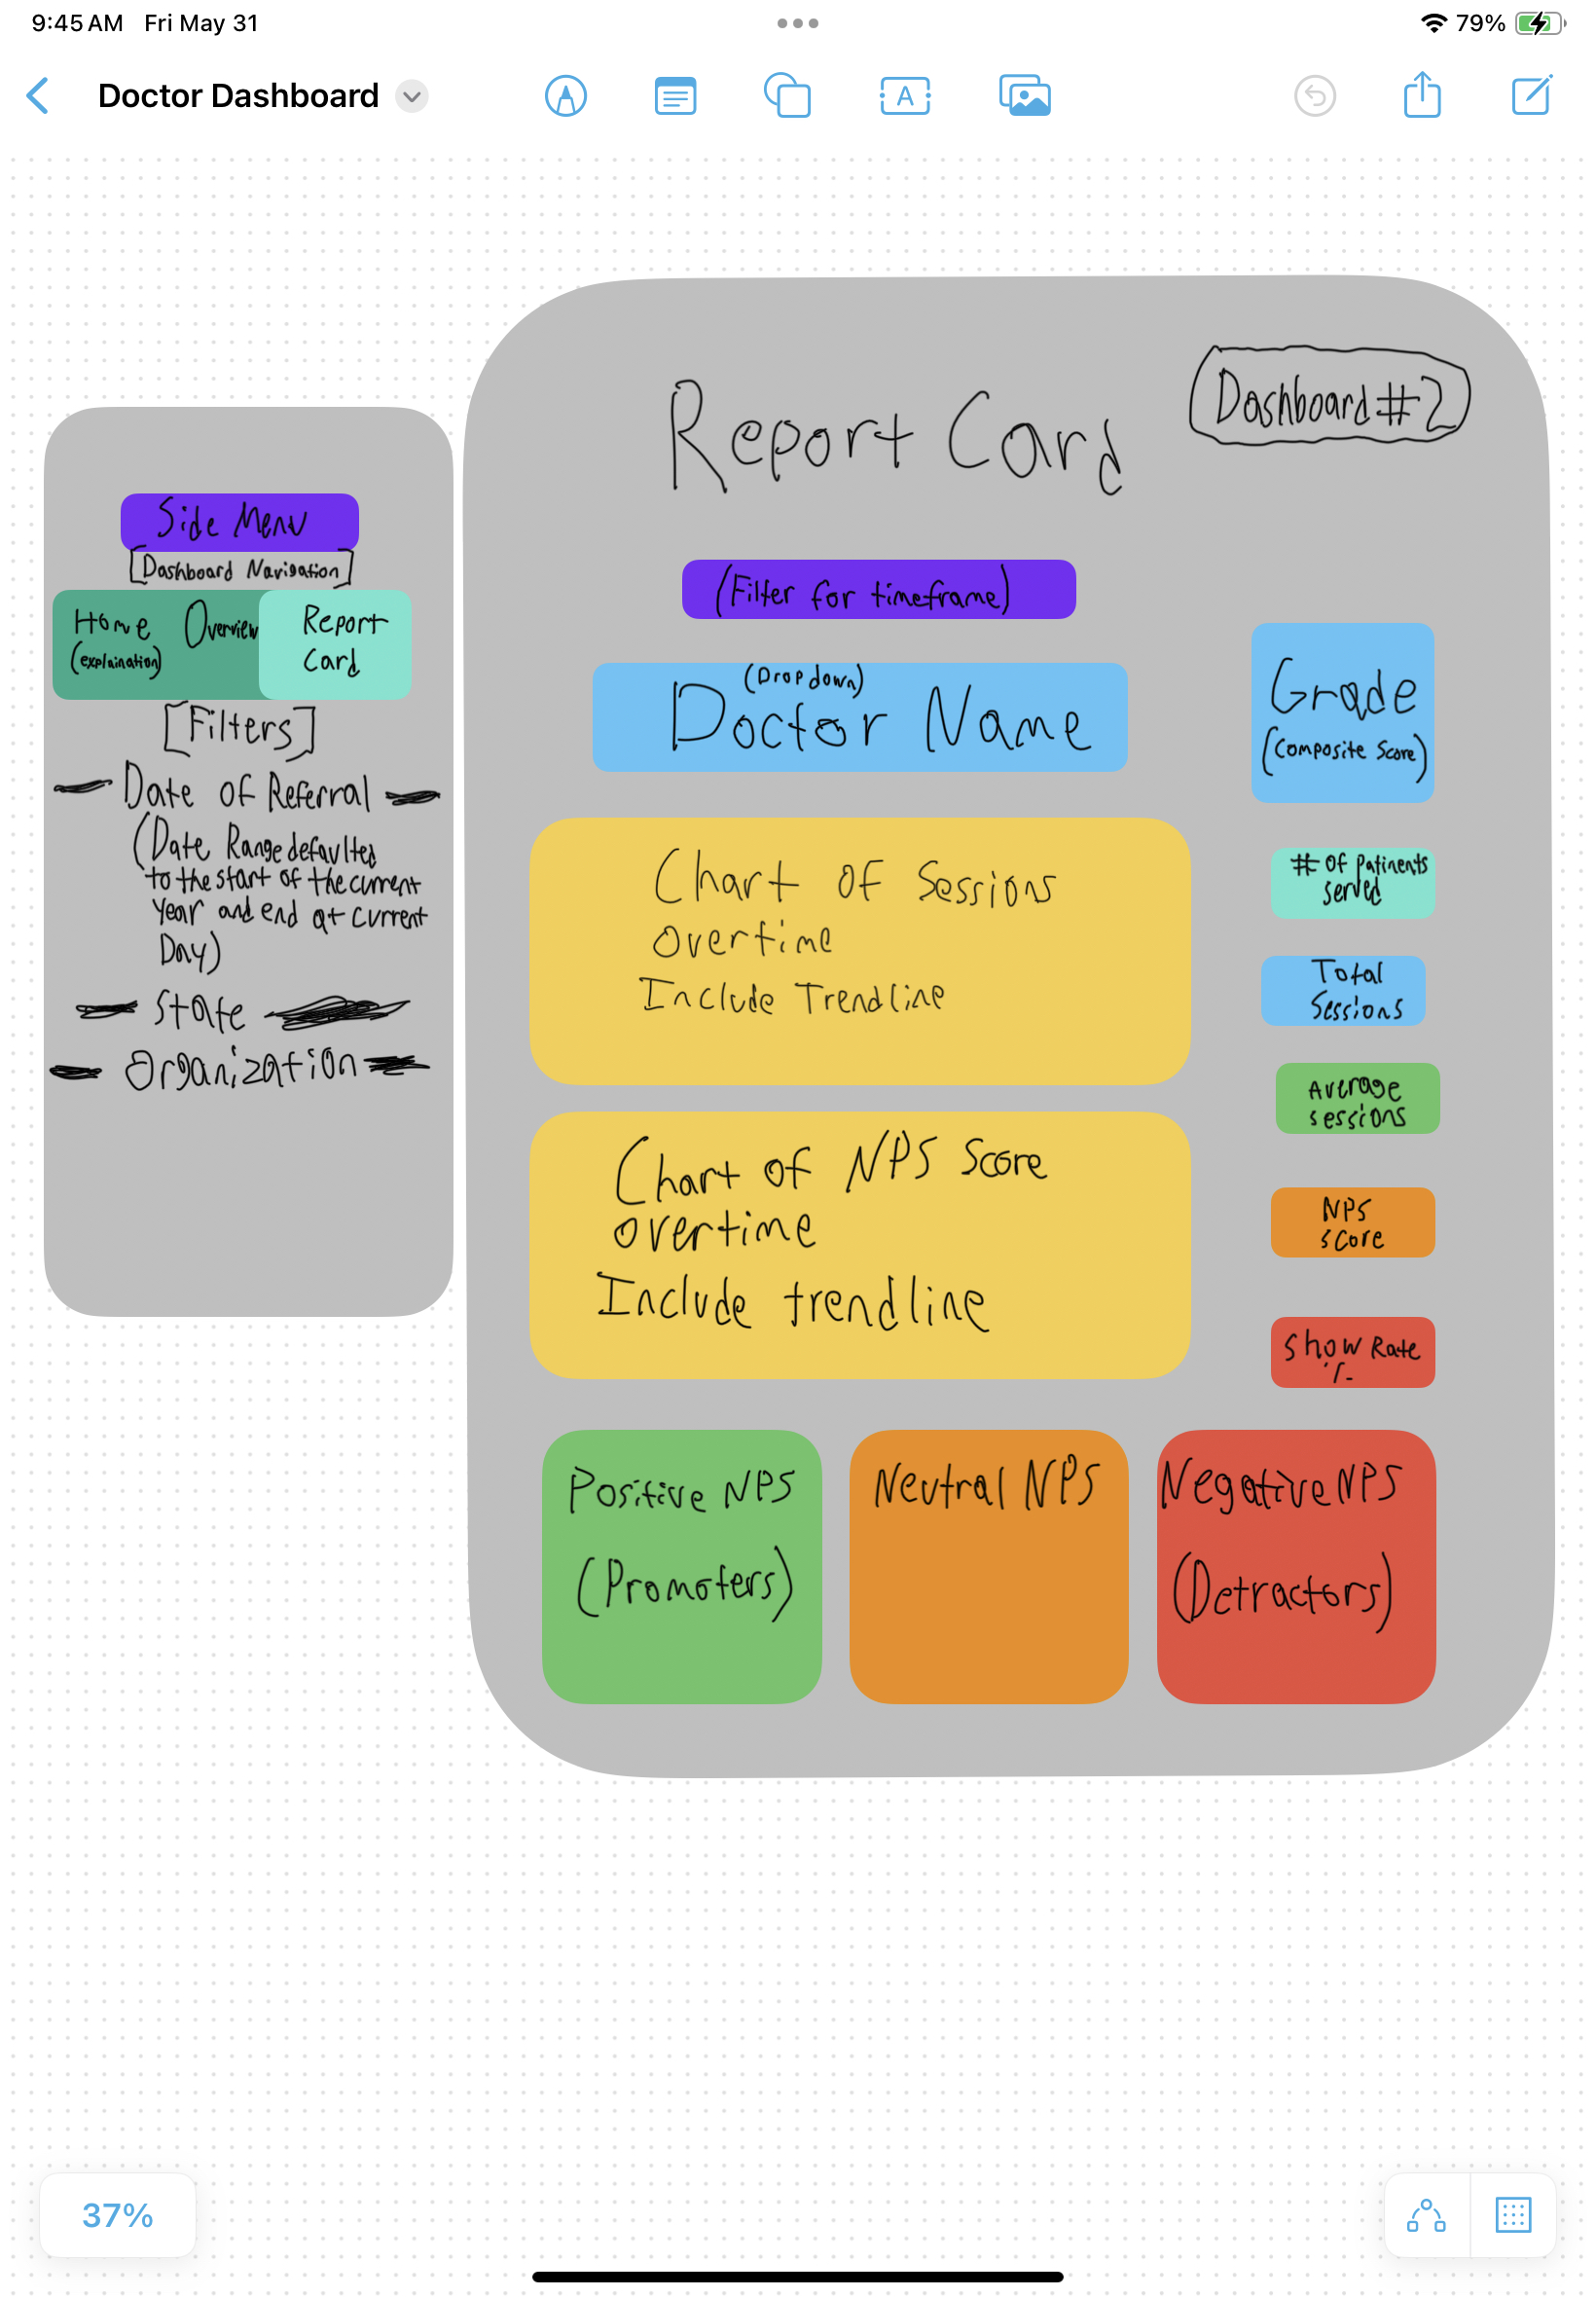 9:45 AM Fri May 31
79%
Doctor Dashboard
A
Dashboard #2
Report Card
Side Menu
[Dashboard Navigation]
Home
(explaination)
Overview
Report
Card
[Filters]
Date of Referral
(Date Range defaulted
to the start of the current
year and end at current
Day)
State
Organization
(Filter for timeframe)
(Dropdown)
Doctor Name
Grade
(Composite Score)
Chart of Sessions
overtime
Include Trendline
# of patinents
served
Total
Sessions
Average
sessions
Chart of NPS Score
overtime
Include trendline
NPS
score
Show Rate
Positive NPS
(Promoters)
Neutral NPS
Negative NPS
(Detractors)
37%